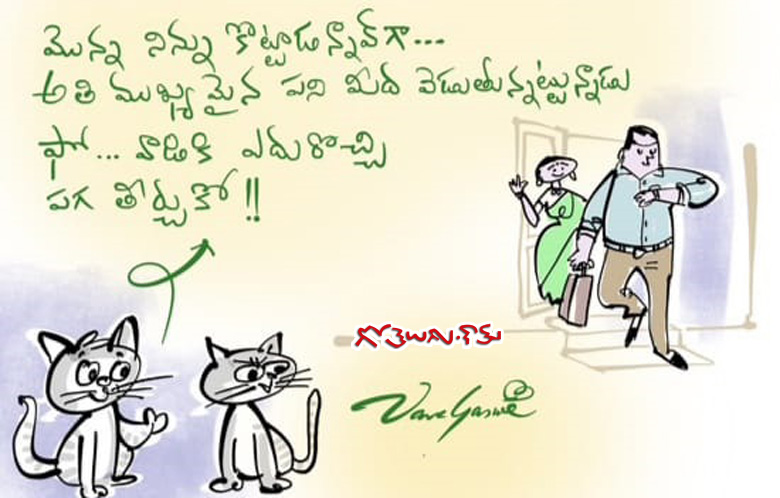 మొన్న నిన్ను కొట్టాడన్నావ్ గా...
అతి ముఖ్యమైన పని మీద వెడుతున్నట్టున్నాడు
ఫో... వాడికి ఎదురొచ్చి
పగ తీర్చుకో!!
గోతెలుగు.కామ్